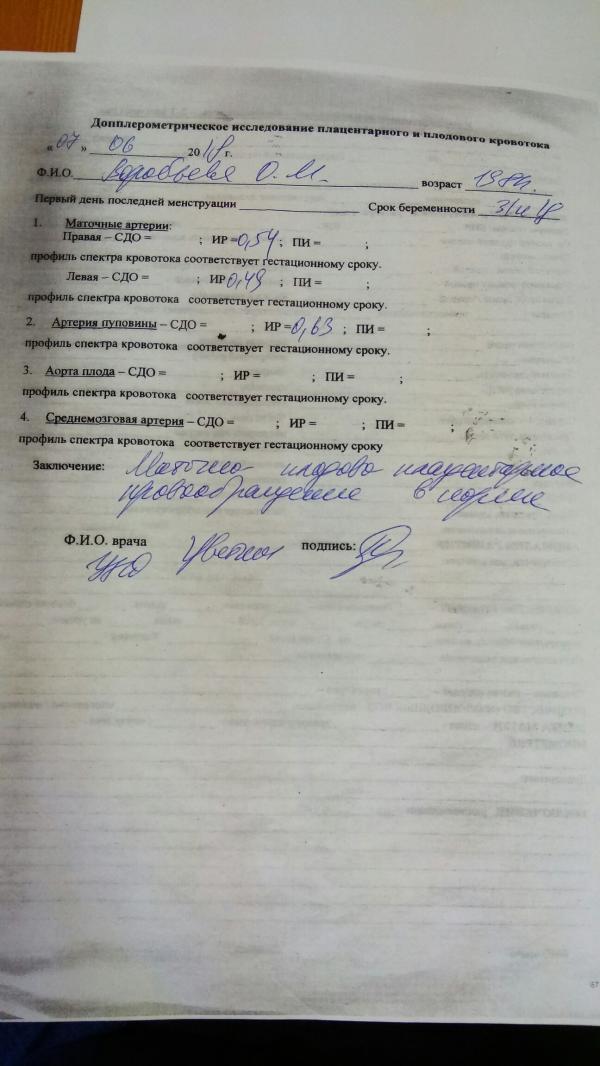 Допплерометрическое исследование плацентарного и плодового кровотока
« 07 » 06 2018 г.
Ф.И.О. Воробьева О. М. возраст
Первый день последней менструации Срок беременности
1. Маточные артерии:
Правая – СДО = ; ИР =0,54 ; ПИ = ;
профиль спектра кровотока соответствует гестационному сроку.
Левая – СДО = ; ИР 0,49 ; ПИ = ;
профиль спектра кровотока соответствует гестационному сроку.
2. Артерия пуповины – СДО = ; ИР =0,63 ; ПИ = ;
профиль спектра кровотока соответствует гестационному сроку.
3. Аорта плода – СДО = ; ИР = ; ПИ = ;
профиль спектра кровотока соответствует гестационному сроку.
4. Среднемозговая артерия – СДО = ; ИР = ; ПИ = ;
профиль спектра кровотока соответствует гестационному сроку
Заключение: Маточно плодово плацентарное
кровообращение в норме
Ф.И.О. врача подпись: